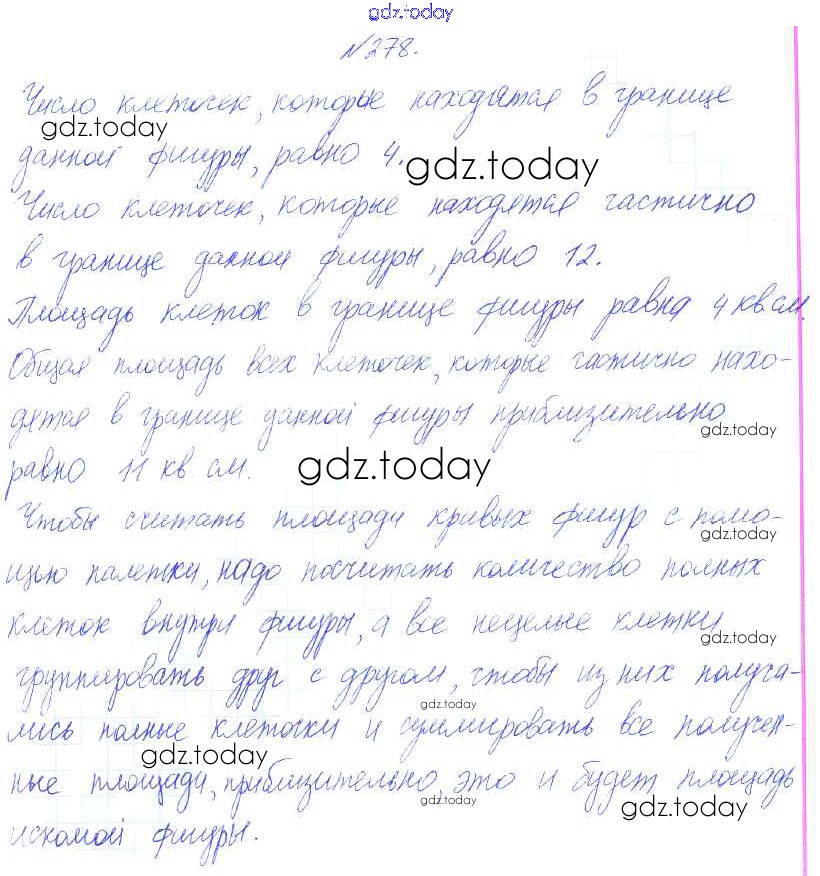 gdz.today
№278.
Число клеточек, которые находятся в границе
gdz.today
данной фигуры, равно 4.
gdz.today
Число клеточек, которые находятся частично
в границе данной фигуры, равно 12.
Площадь клеток в границе фигуры равна 4 кв. см.
Общая площадь всех клеточек, которые частично нахо-
дятся в границе данной фигуры приблизительно
gdz.today
равно 11 кв. см.
gdz.today
Чтобы считать площади кривых фигур с помо-
gdz.today
щью палетки, надо посчитать количество полных
клеток внутри фигуры, а все нецелые клетки
gdz.today
группировать друг с другом, чтобы из них получа-
gdz.today
лись полные клеточки и суммировать все получен-
gdz.today
ные площади, приблизительно, это и будет площадь
gdz.today
gdz.today
искомой фигуры.